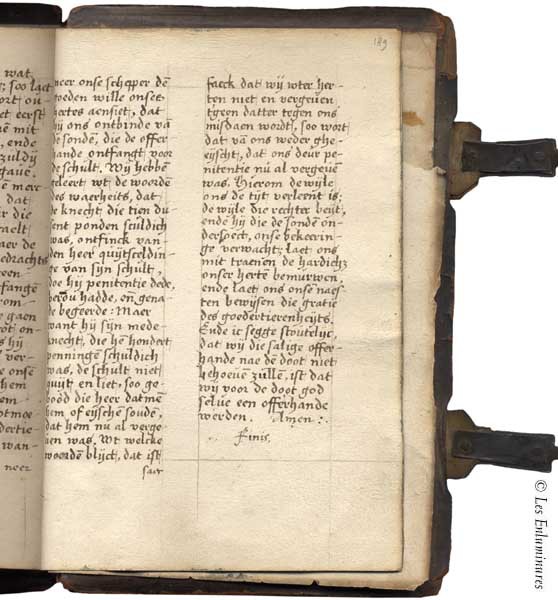 189
wat
soo laet
eerst
mit
ende
zuldij
gaue.
mer
dat
die
de
gedrachts
gaen
hij
ver-
onse
hem
wan-
neer
neer onse schepper dē
goeden wille onses
hertes aensiet, dat
hij ons ontbinde vā
de sonden, die de offer
hande ontfangt voor
de schult. Wij hebbē
geleert wt de woordē
des waerheits, dat
de knecht die tien du
sent ponden sculdich
was, ontfinck van
den heer quijtsceldin-
ge van sijn schult,
doe hij penitentie dede,
berou hadde, en gena-
de begeerde: Maer
want hij sijn mede
knecht, die hē hondert
penningen schuldich
was, de schult niet
quijt en liet, soo ge-
bood die heer datmen
hem of eijschen soude,
dat hem nu al verge-
uen was. Wt welche
woorden blijct, dat ist
saec
saeck dat wij wter her-
ten niet en vergeuen
tgeen datter tegen ons
misdaen wordt, soo wort
dat van ons weder ghe-
eijscht, dat ons deur pe-
nitentie nu al vergeuē
was. Hierom dewijle
ons de tijt verleent is;
de wijle die rechter beijt,
ende hij die de sonden on-
dersoect, onse bekeerin-
ge verwacht, laet ons
mit traenen de hardicheit
onser herte bemurwen,
ende laet ons onse naes-
ten bewijsen die gratie
des goedertierenheijts.
Ende ic segge stoutelijc,
dat wij die salige offer-
hande nae de doot niet
behoeuē zullē, ist dat
wij voor de doot god
selue een offerhande
werden. Amen:.
Finis.
© Les Enluminures